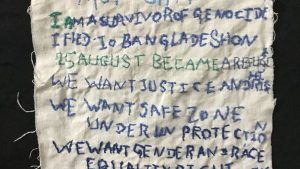 I AM A SURVIVOR OF GENOCIDE
I FLED TO BANGLADESH ON
25 AUGUST BECAME A REFUGEE
WE WANT JUSTICE AND
WE WANT SAFE ZONE
UNDER UN PROTECTION
WE WANT GENDER AN RACE
EQUALITY